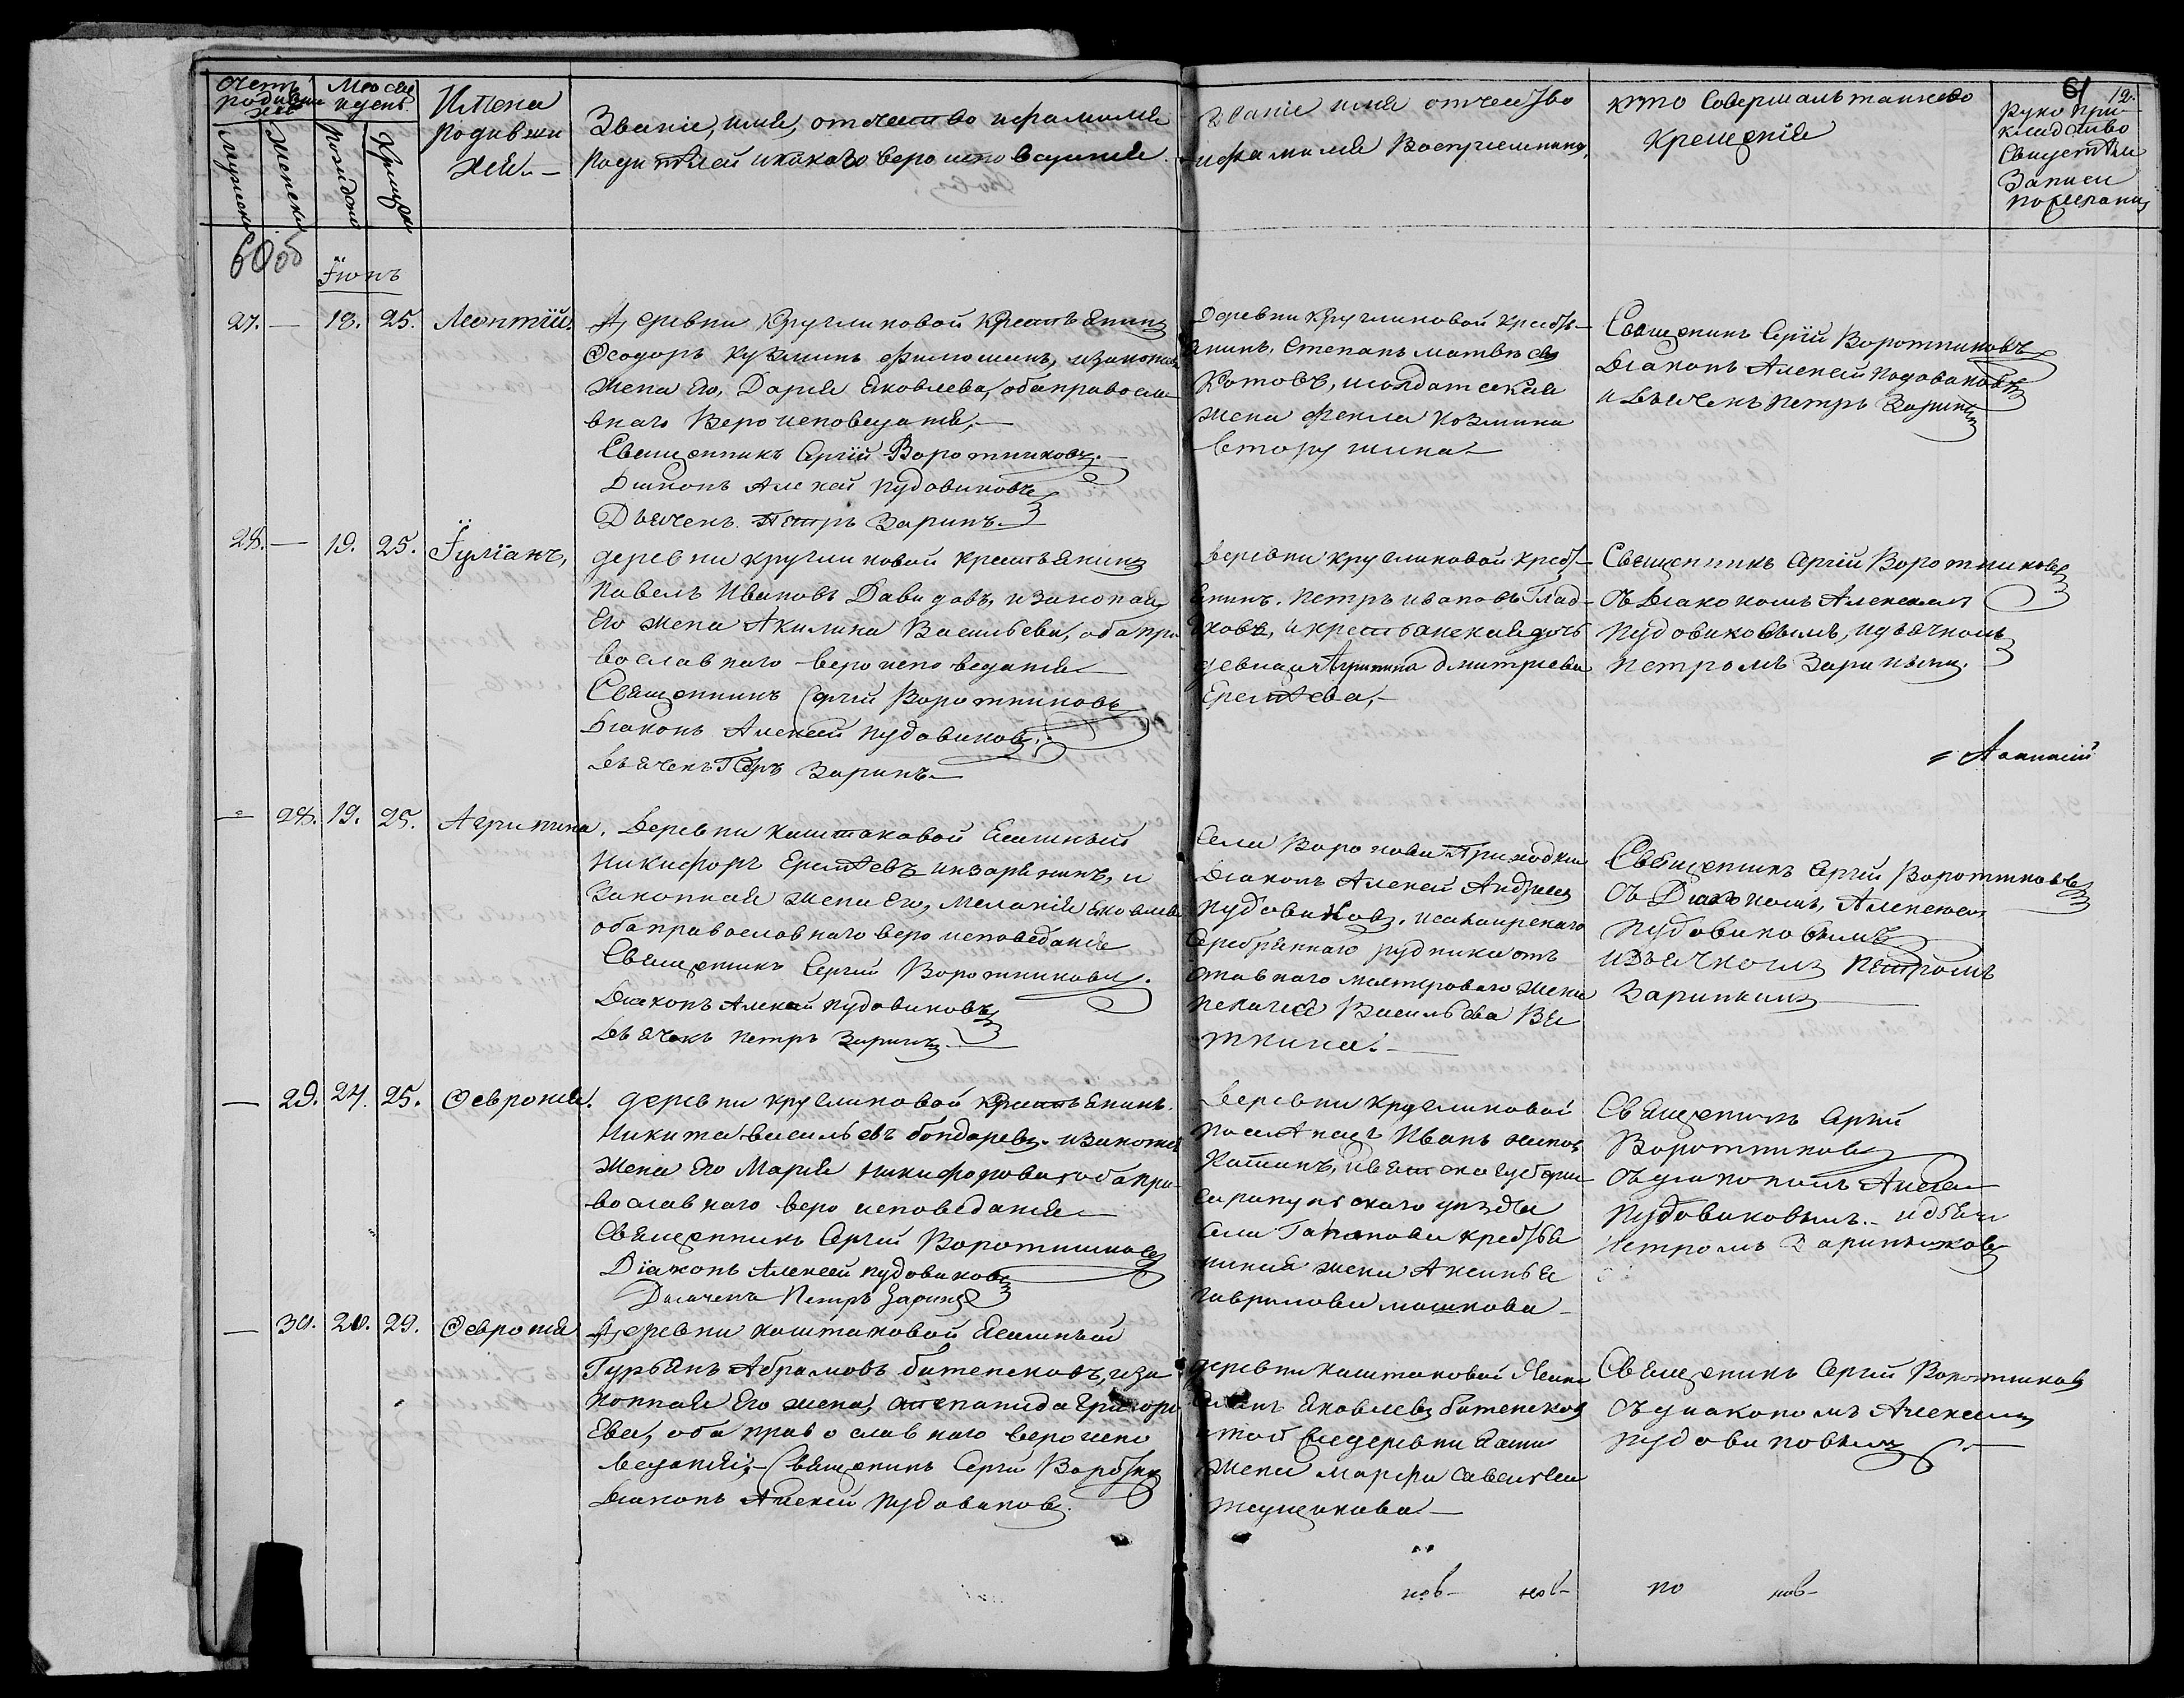 Счетъ родившихся
Месяцъ и день
Мужеска
Женска
рождения
Крещения
Имена
родивши
хся
Званіе, имя, отчество и фамилія
родителей и какого вероисповеданія
Званіе имя отчество
и фамилія Воспріемниковъ
кто Совершалъ таинство
Крещенія
61
12.
Рукопри-
кладство
Свидетелей
Записи
по желанію
60 об
Іюнь
27. — 18. 25. Леонтій.
Деревни Кругликовой Крестьянинъ
Феодоръ Кузминъ Филюшинъ, изаконная
жена Его, Дарія Яковлева, оба правосла-
внаго Вероисповеданія, —
Священникъ Сергій Воротниковъ. —
Діаконъ Алексей Пудовиковъ
Дьячекъ Петръ Заринъ. —
Деревни Кругликовой крестья-
нинъ, Степанъ матвѣевъ
Котовъ, исолдатская
жена Фекла Козмина
Вторушина —
Священикъ Сергій Воротниковъ
Діаконъ Алексей Пудовиковъ
и Дьячекъ Петръ Заринъ
28. — 19. 25. Іуліанъ,
деревни кругликовой крестьянинъ
Павелъ Ивановъ Давыдовъ, изаконная
Его жена Акилина Васильева, оба пра
вославнаго вероисповеданія —
Священникъ Сергій Воротниковъ
Діаконъ Алексей Пудовиковъ.
Дьячекъ Петръ Заринъ —
Деревни кругликовой Крест-
янинъ. Петръ ивановъ Глад-
ковъ, икрестьянская дочь
девица Агрипина Дмитриева
Еремѣева, —
Священникъ Сергій Воротниковъ
Съ Діакономъ Алексеемъ
Пудовиковымъ, идьячкомъ
Петромъ Заринымъ.
Аѳанасій
— 28. 19. 25. Агрипина.
Деревни Каштаковой Ясашный
Никифоръ Еремѣевъ инзаринъ, и
Законная жена Его, Меланія Яковлева
оба православнаго вероисповеданія
Священикъ Сергій Воротниковъ.
Діаконъ Алексей Пудовиковъ
Дьячекъ Петръ Заринъ. —
Села Воронова Приходскій
Діаконъ Алексей Андреевъ
Пудовиковъ. исалаирскаго
Серебрянаго рудника от
ставнаго мастероваго жена
Пелагея Васильева Вя
ткина. —
Священикъ Сергій Воротниковъ
Съ Діакономъ, Алексеемъ
Пудовиковымъ
идьячкомъ Петромъ
Заринымъ —
— 29. 24. 25. Февронія.
деревни кругликовой крестьянинъ.
Никита васильевъ бондаревъ. изаконная
жена Его Марія Никифорова, оба пра-
вославнаго веро исповеданія —
Священникъ Сергій Воротниковъ
Діаконъ Алексей Пудовиковъ
Дьячекъ Петръ Заринъ
Деревни Кругликовой
Поселенецъ Иванъ
ивятской губерніи
сарапульскаго уѣзда
Села крестья
нина жена Аксинья
Гаврилова машкова —
Священикъ Сергій
Воротниковъ
Съ діакономъ Алексе
Пудовиковымъ. — идьяч
Петромъ
— 30. 28. 29. Февронія
Деревни каштаковой Ясашный
Гурьянъ Абрамовъ битенековъ, иза
конная Его жена, степанида Григорь
Ева, оба православнаго вероиспо
веданія; — Священикъ Сергій Воротник
Діаконъ Алексей Пудовиковъ.
деревни каштаковой Ясаш
Яковлевъ битенековъ
итой же деревни Ясаш
жена Марфа Савельева
тащакова —
Священикъ Сергій Воротниковъ
Съ діакономъ Алексеемъ
Пудовиковымъ —